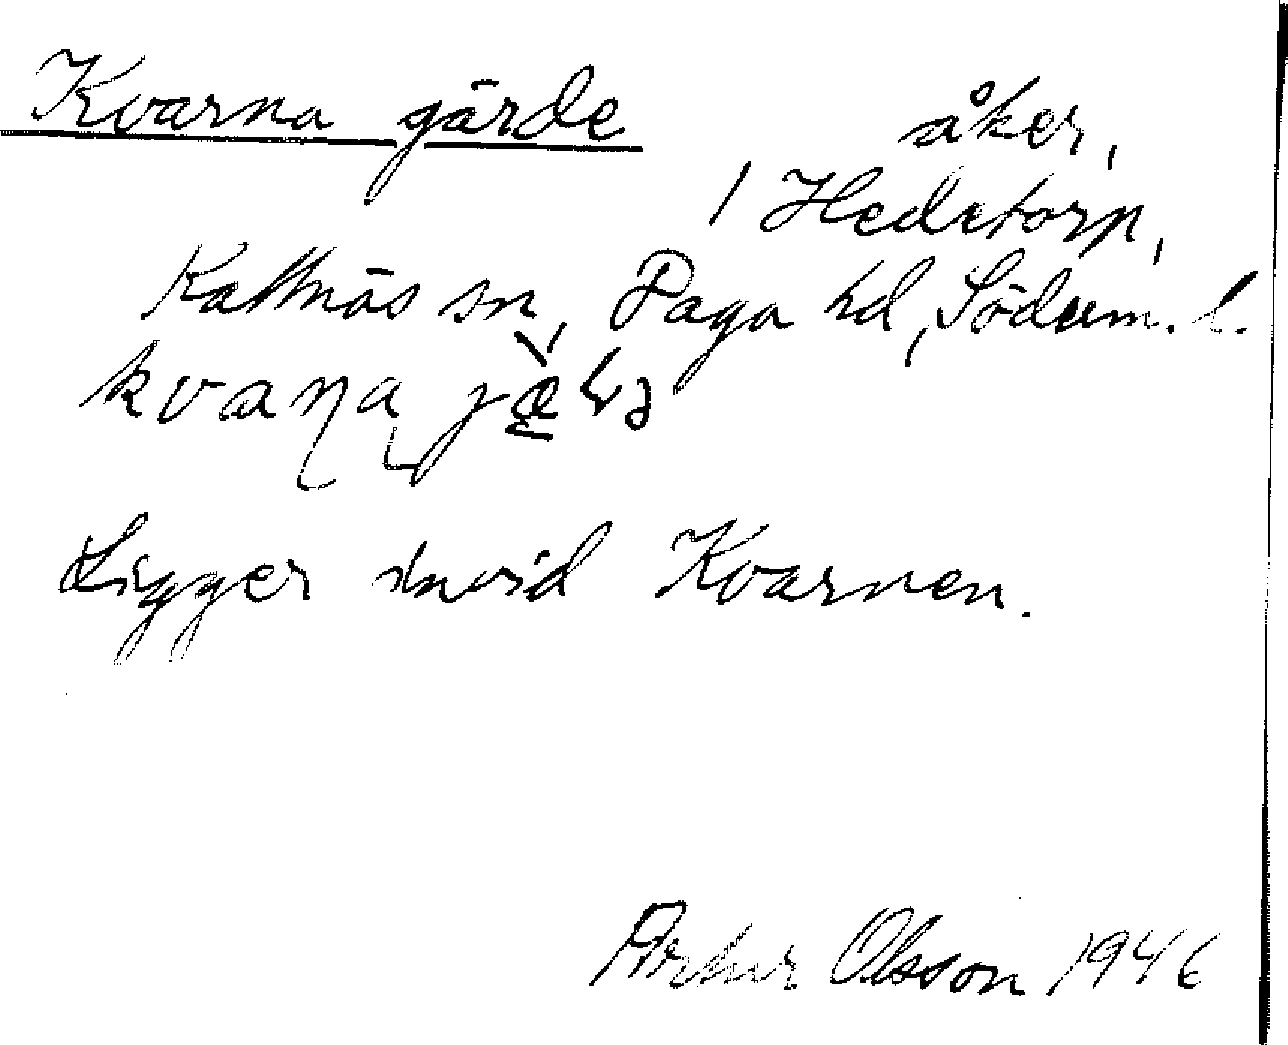 Kvarna gärde åker,
i Hedetorp,
Kattnäs sn, Daga hd, Söderm. l.
Ligger invid Kvarnen.
Artur Olsson 1946